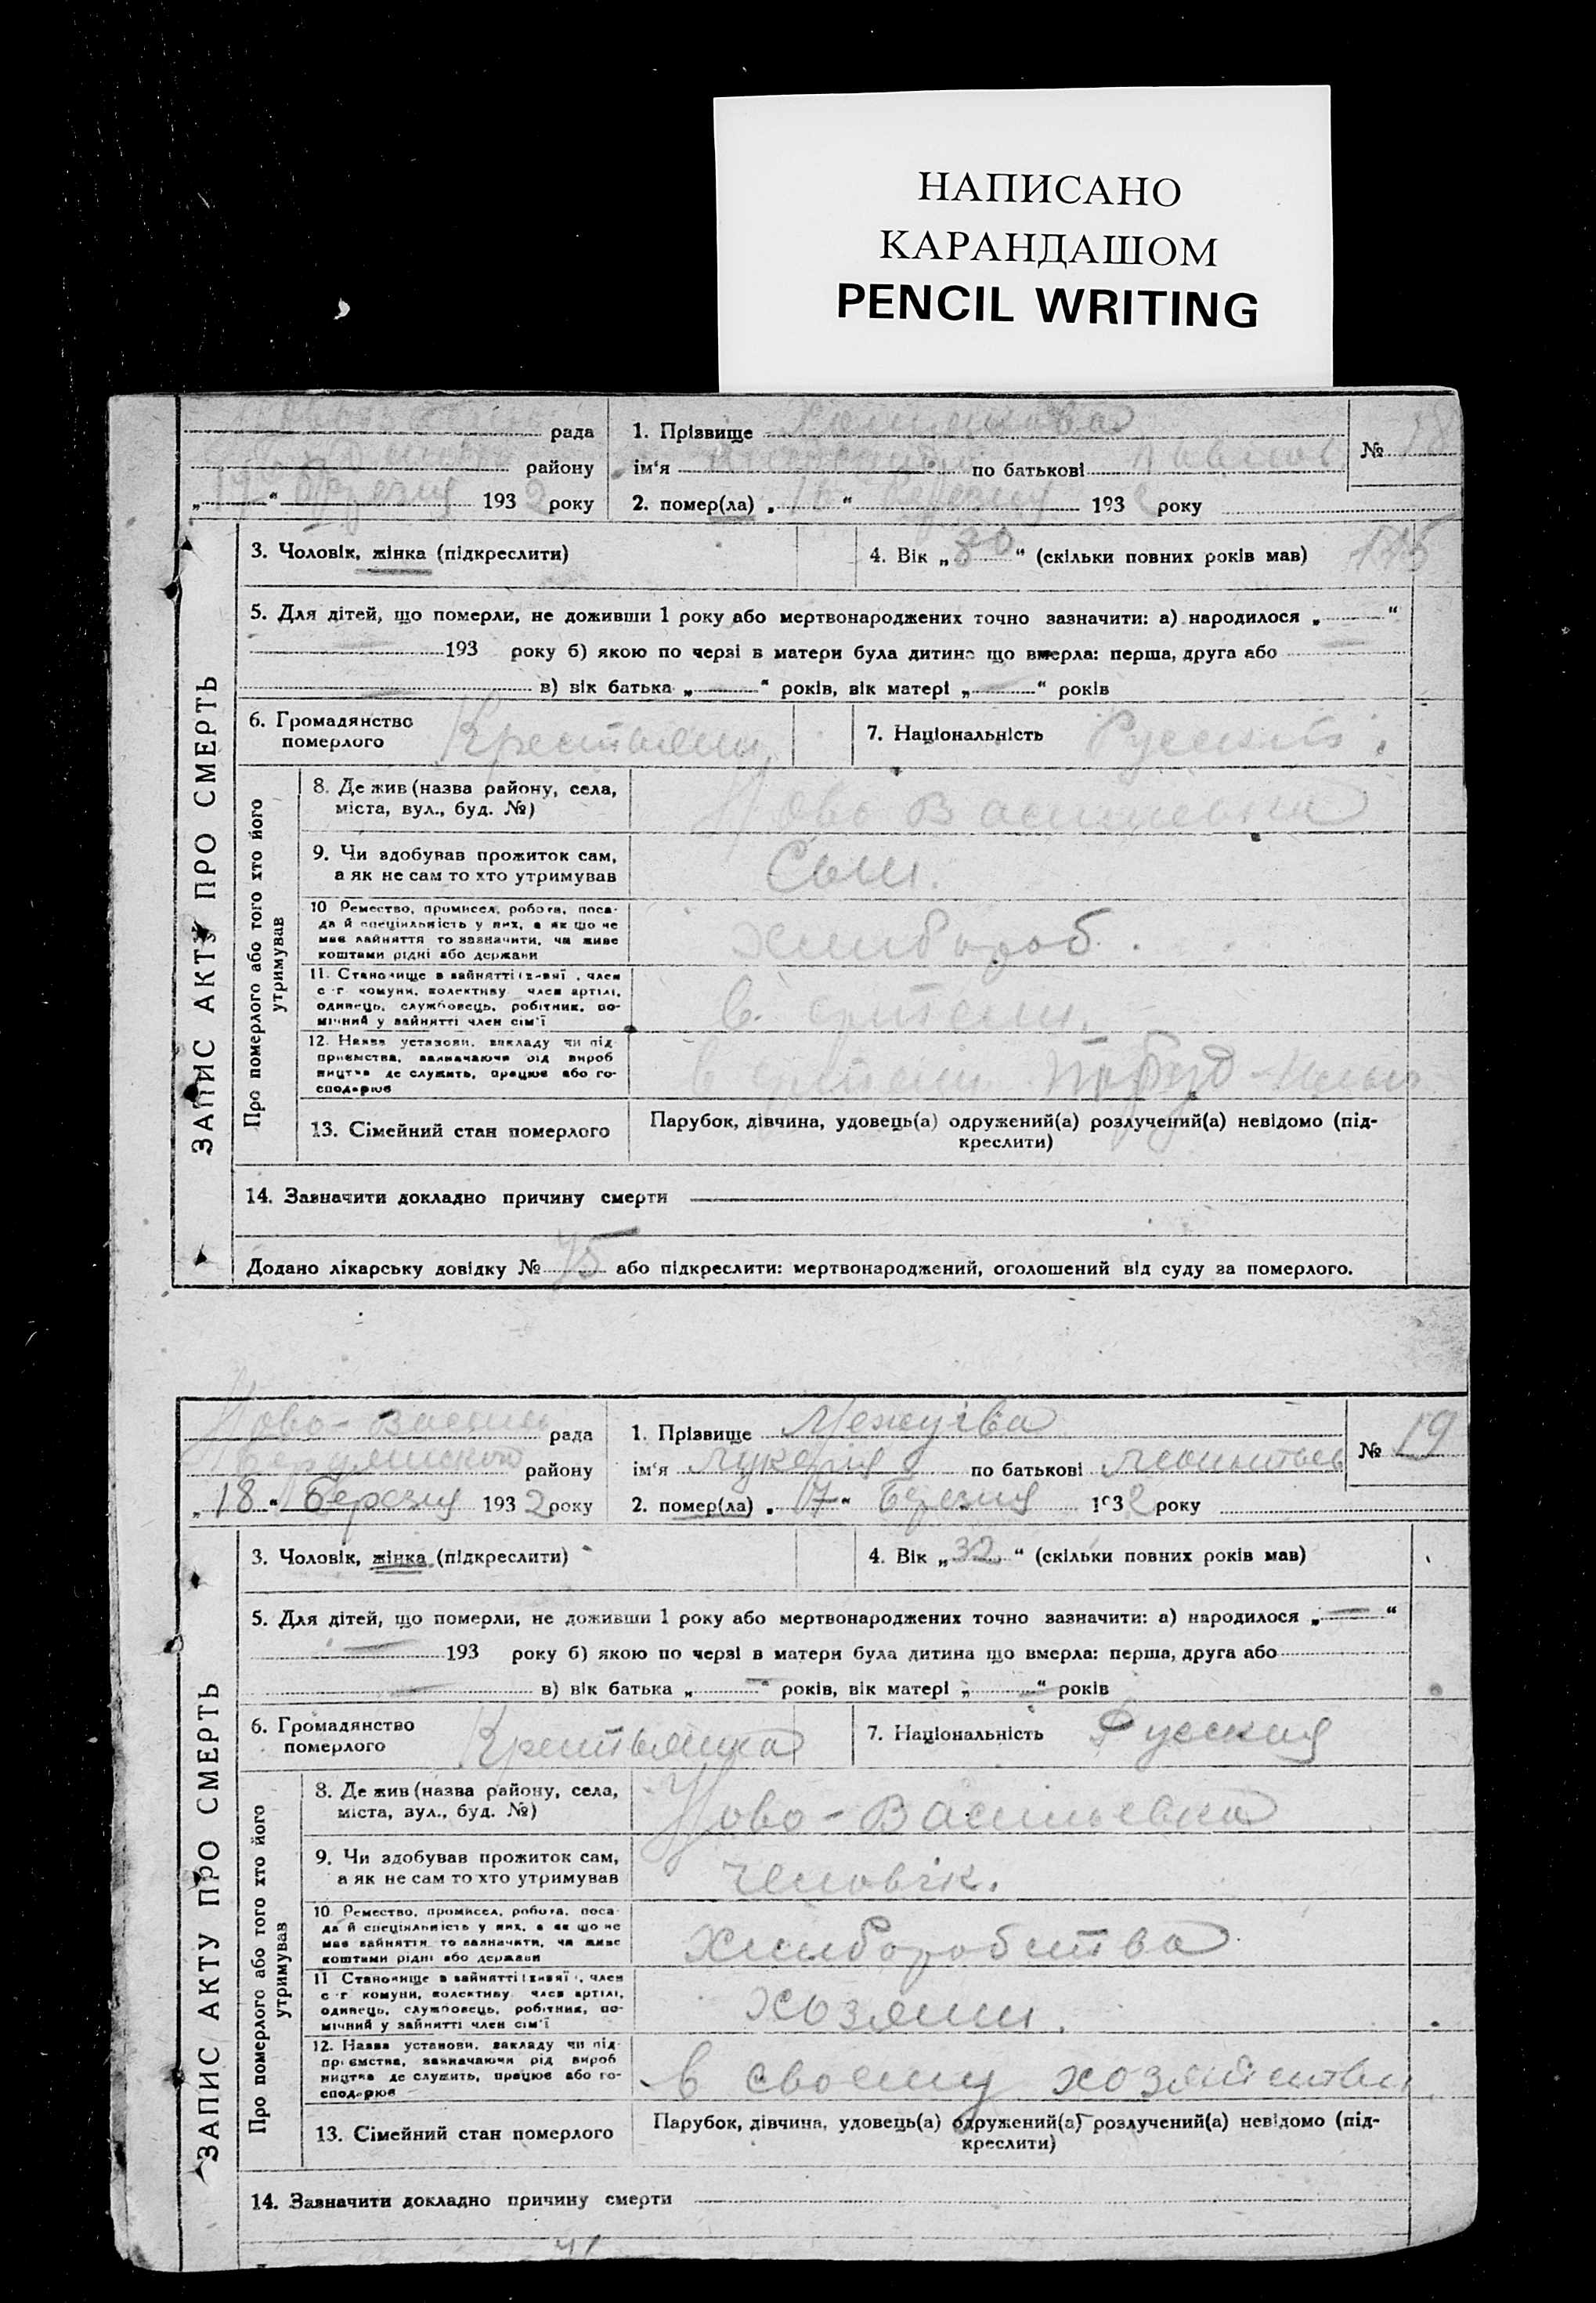 НАПИСАНО
КАРАНДАШОМ
PENCIL WRITING
рада
1. Прізвище
№ 18
району
ім'я по батькові
„19“ Березня 1932 року
2. помер(ла) „ “ Березня 1932 року
3. Чоловік, жінка (підкреслити)
4. Вік „80“ (скільки повних років мав)
175
5. Для дітей, що померли, не доживши 1 року або мертвонароджених точно зазначити: а) народилося „ “
193 року б) якою по черзі в матери була дитина що вмерла: перша, друга або
в) вік батька „ “ років, вік матері „ “ років
6. Громадянство померлого Крестьянин
7. Національність Русский
ЗАПИС АКТУ ПРО СМЕРТЬ
Про померлого або того хто його утримував
8. Де жив (назва району, села,
міста, вул., буд. №)
Ново Васильевка
9. Чи здобував прожиток сам,
а як не сам то хто утримував
Сын.
10 Ремество, промисел, робота, поса-
да й спеціяльність у них, а як що не
має зайняття то зазначити, чи живе
коштами рідні або держави
Хлибороб.
11. Становище в зайнятті (х-вяї, член
с.-г. комуни, колективу член артілі,
одинець, службовець, робітник, по-
мічний у зайнятті член сім'ї
В артели.
12. Назва установи, закладу чи під
приємства, зазначаючи рід вироб
ництва де служить, працює або го-
сподарює
в артели
13. Сімейний стан померлого
Парубок, дівчина, удовець(а) одружений(а) розлучений(а) невідомо (під-
креслити)
14. Зазначити докладно причину смерти
Додано лікарську довідку № 45 або підкреслити: мертвонароджений, оголошений від суду за померлого.
Ново-Васил рада
1. Прізвище Межуєва
№ 19
району
ім'я Лукерия по батькові
„18“ Березня 1932 року
2. помер(ла) „17“ Березня 1932 року
3. Чоловік, жінка (підкреслити)
4. Вік „32“ (скільки повних років мав)
5. Для дітей, що померли, не доживши 1 року або мертвонароджених точно зазначити: а) народилося „ “
193 року б) якою по черзі в матери була дитина що вмерла: перша, друга або
в) вік батька „ “ років, вік матері „ “ років
6. Громадянство померлого Крестьянка
7. Національність Русския
ЗАПИС АКТУ ПРО СМЕРТЬ
Про померлого або того хто його утримував
8. Де жив (назва району, села,
міста, вул., буд. №)
Ново-Васильевка
9. Чи здобував прожиток сам,
а як не сам то хто утримував
человік.
10. Ремество, промисел, робота, поса-
да й спеціяльність у них, а як що не
має зайняття то зазначити, чи живе
коштами рідні або держави
Хлиборобства
11 Становище в зайнятті (х-вяї, член
с.-г. комуни, колективу член артілі,
одинець, службовець, робітник, по-
мічний у зайнятті член сім'ї
хозяин.
12. Назва установи, закладу чи під
приємства, зазначаючи рід вироб
ництва де служить, працює або го-
сподарює
в своему хозяйстви
13. Сімейний стан померлого
Парубок, дівчина, удовець(а) одружений(а) розлучений(а) невідомо (під-
креслити)
14. Зазначити докладно причину смерти